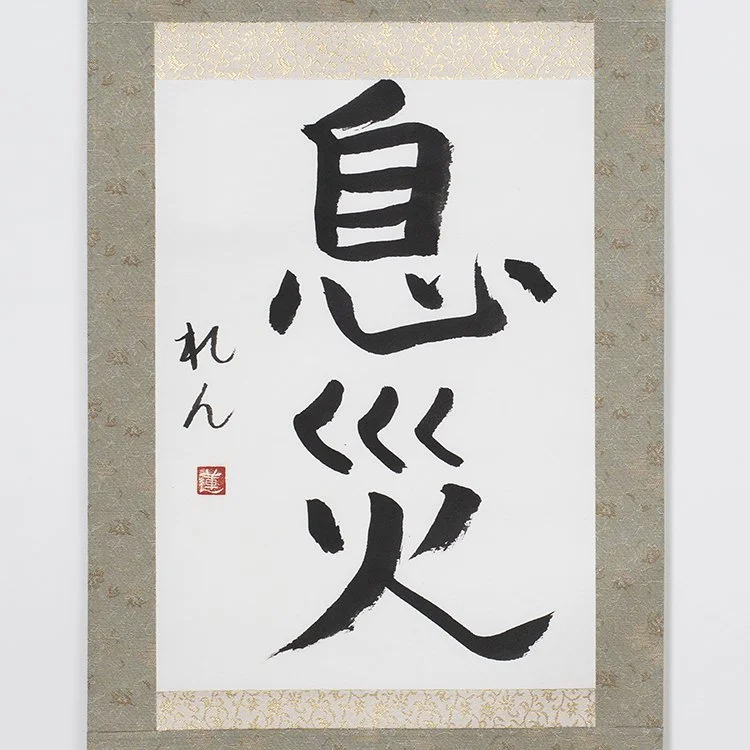 息災
れん
蓮